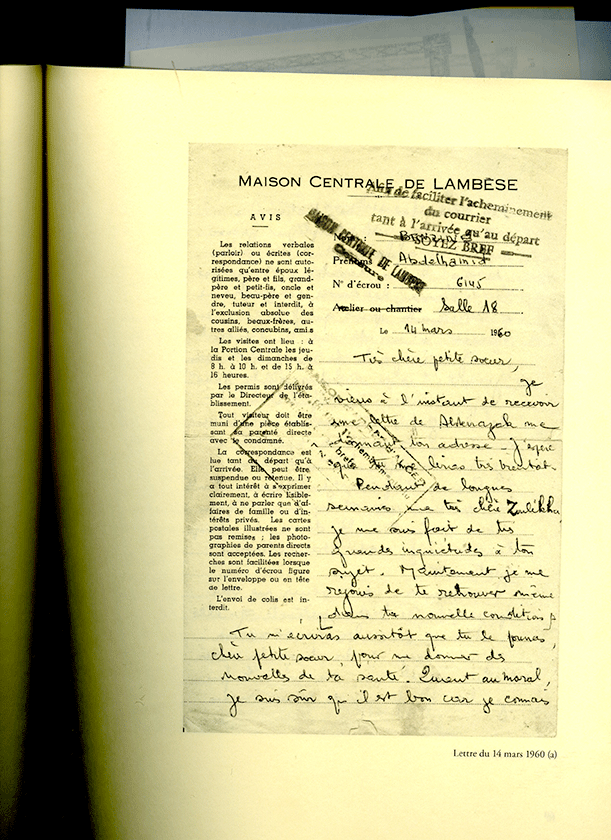 MAISON CENTRALE DE LAMBÈSE
Afin de faciliter l'acheminement
du courrier
tant à l'arrivée qu'au départ
SOYEZ BREF
MAISON CENTRALE DE LAMBÈSE
Censure
AVIS
Les relations verbales
(parloir) ou écrites (cor-
respondance) ne sont auto-
risées qu'entre époux lé-
gitimes, père et fils, grand-
père et petit-fils, oncle et
neveu, beau-père et gen-
dre, tuteur et interdit, à
l'exclusion absolue des
cousins, beaux-frères, au-
tres alliés, concubins, amis
Les visites ont lieu : à
la Portion Centrale les jeu-
dis et les dimanches de
8 h. à 10 h. et de 15 h. à
16 heures.
Les permis sont délivrés
par le Directeur de l'éta-
blissement.
Tout visiteur doit être
muni d'une pièce établis-
sant sa parenté directe
avec le condamné.
La correspondance est
lue tant au départ qu'à
l'arrivée. Elle peut être
suspendue ou retenue. Il y
a tout intérêt à s'exprimer
clairement, à écrire lisible-
ment, à ne parler que d'af-
faires de famille ou d'in-
térêts privés. Les cartes
postales illustrées ne sont
pas remises ; les photo-
graphies de parents directs
sont acceptées. Les recher-
ches sont facilitées lorsque
le numéro d'écrou figure
sur l'enveloppe ou en tête
de lettre.
L'envoi de colis est in-
terdit.
Nom :
Prénoms Abdelhamid
N° d'écrou : 6145
Atelier ou chantier Salle 18
Le 14 mars 1960
Très chère petite sœur,
je
viens à l'instant de recevoir
une lettre de Abderezak me
donnant ton adresse. J'espère
que tu me liras très bientôt.
Pendant de longues
semaines ma très chère Zulikha
je me suis fait de très
grandes inquiétudes à ton
sujet. Maintenant je me
rejouis de te retrouver même
dans ta nouvelle condition
Tu m'écriras aussitôt que tu le pourras,
chère petite sœur, pour me donner des
nouvelles de ta santé. Quant au moral,
je suis sûr qu'il est bon car je connais
Lettre du 14 mars 1960 (a)